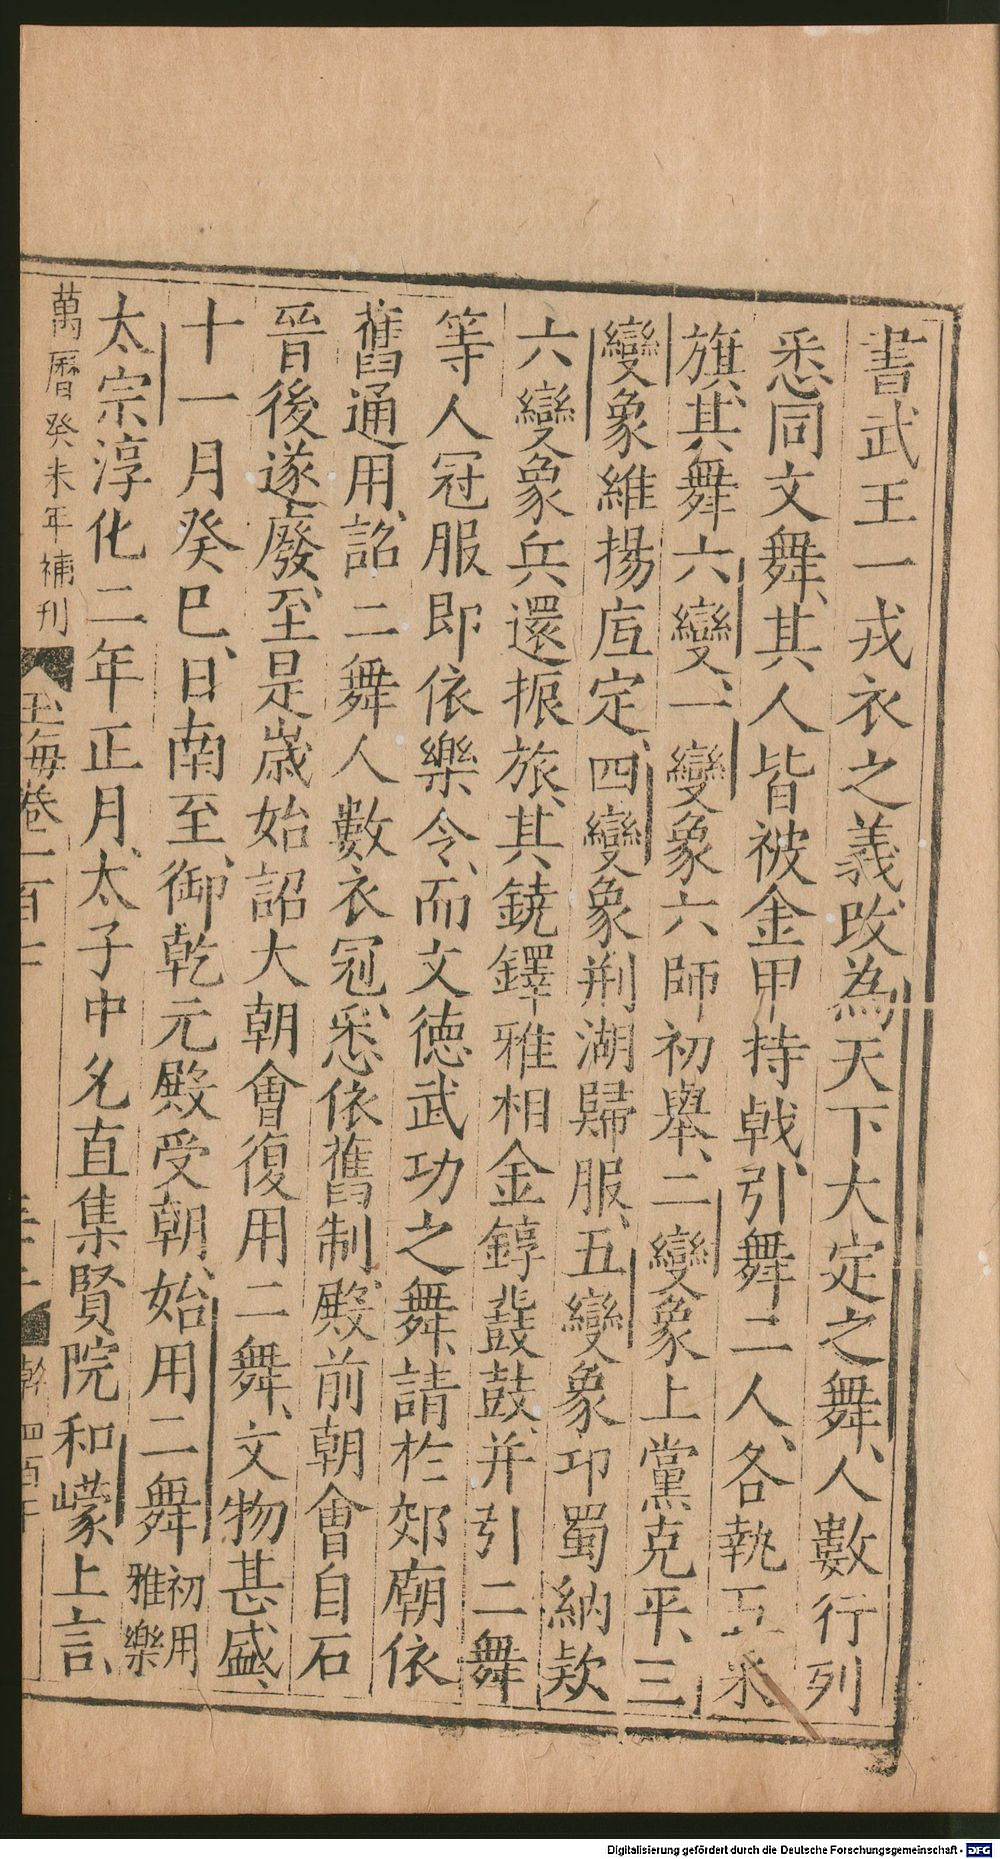 書武王一戎衣之義改為天下大定之舞、人數行列
悉同文舞、其人皆被金甲持戟、引舞二人、各執五采
旗、其舞六變、一變象六師初舉、二變象上黨克平、三
變象維揚底定、四變象荆湖歸服、五變象卭蜀納欵
六變象兵還振旅、其鐃鐸雅相金錞鼗鼓、并引二舞
等人冠服即依樂令、而文德武功之舞、請於郊廟依
舊通用、詔二舞人數衣冠、悉依舊制、殿前朝會自石
晉後遂廢、至是歳始詔大朝會復用二舞、文物甚盛、
十一月癸巳、日南至、御乾元殿受朝、始用二舞初用
雅樂
太宗淳化二年正月、太子中允直集賢院和㠓上言、
萬曆癸未年補刊
玉海卷一百七
幹四百千
Digitalisierung gefördert durch die Deutsche Forschungsgemeinschaft - DFG